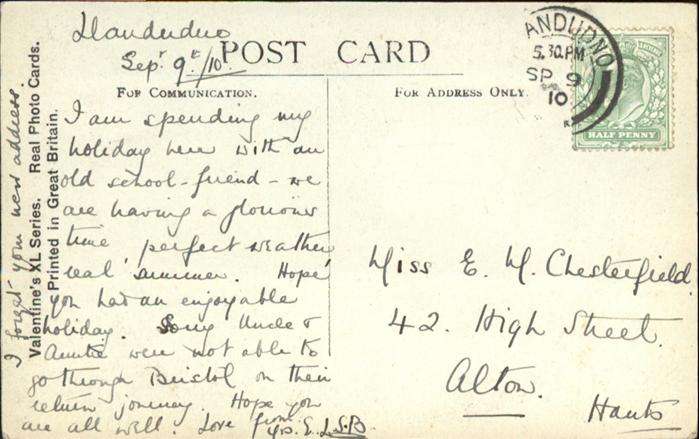 Llandudno
Sepr 9th/10
POST CARD
FOR COMMUNICATION.
FOR ADDRESS ONLY.
I am spending my
holiday here with an
old school-friend - we
are having a glorious
time, perfect weather,
real summer. Hope
you had an enjoyable
holiday. Sorry Uncle &
Auntie were not able to
go through Bristol on their
return journey. Hope you
are all well. Love from
Yrs. E. L. S. B.
I forget your new address.
Valentine's XL Series. Real Photo Cards.
Printed in Great Britain.
ANDUDNO
5.30 PM
SP 9
10
HALF PENNY
Miss E. M. Chesterfield.
42. High Street.
Alton.
Hants